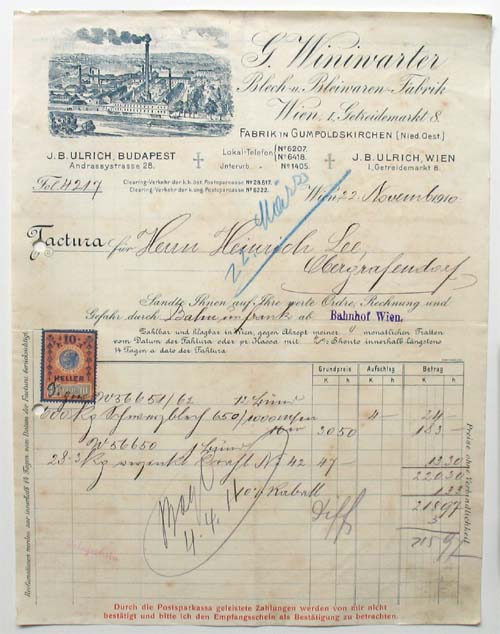 G. Winiwarter
Blech- u. Bleiwaren-Fabrik
Wien, I, Getreidemarkt 8.
FABRIK IN GUMPOLDSKIRCHEN (Nied. Oest.)
J. B. ULRICH, BUDAPEST
Andrassystrasse 28.
Lokal-Telefon No 6207.
No 6418.
Interurb. No 1405.
J. B. ULRICH, WIEN
I, Getreidemarkt 8.
Fol. 4217
Clearing-Verkehr der k.k. öst. Postsparcasse No 28.617.
Clearing-Verkehr der k. ung. Postsparcasse No 6222.
Wien, 22. November 1910
22. März
Factura für Herrn Heinrich See,
Obergrafendorf
Sandte Ihnen auf Ihre werte Ordre, Rechnung und
Gefahr durch Bahn unfrank ab Bahnhof Wien.
Zahlbar und klagbar in Wien, gegen Akzept meiner 4 monatlichen Tratten
vom Datum der Faktura oder per Kassa mit 2% Skonto innerhalb längstens
14 Tagen a dato der Faktura.
10
HELLER
Grundpreis Aufschlag Betrag
K h K h K h
No 56651/62 12 Bund
600 kg Schwarzblech 650/1000
4 - 24 -
30 50 183 -
No 56650 1 Bund
28·3 kg No 42 47 - 13 30
220 30
10% Rabatt 1 33
218 97
Diff 3
215 97
4.4.11
Preise ohne Verbindlichkeit.
Reclamationen werden nur innerhalb 14 Tagen vom Datum der Factura berücksichtigt.
Durch die Postsparkassa geleistete Zahlungen werden von mir nicht
bestätigt und bitte ich den Empfangsschein als Bestätigung zu betrachten.